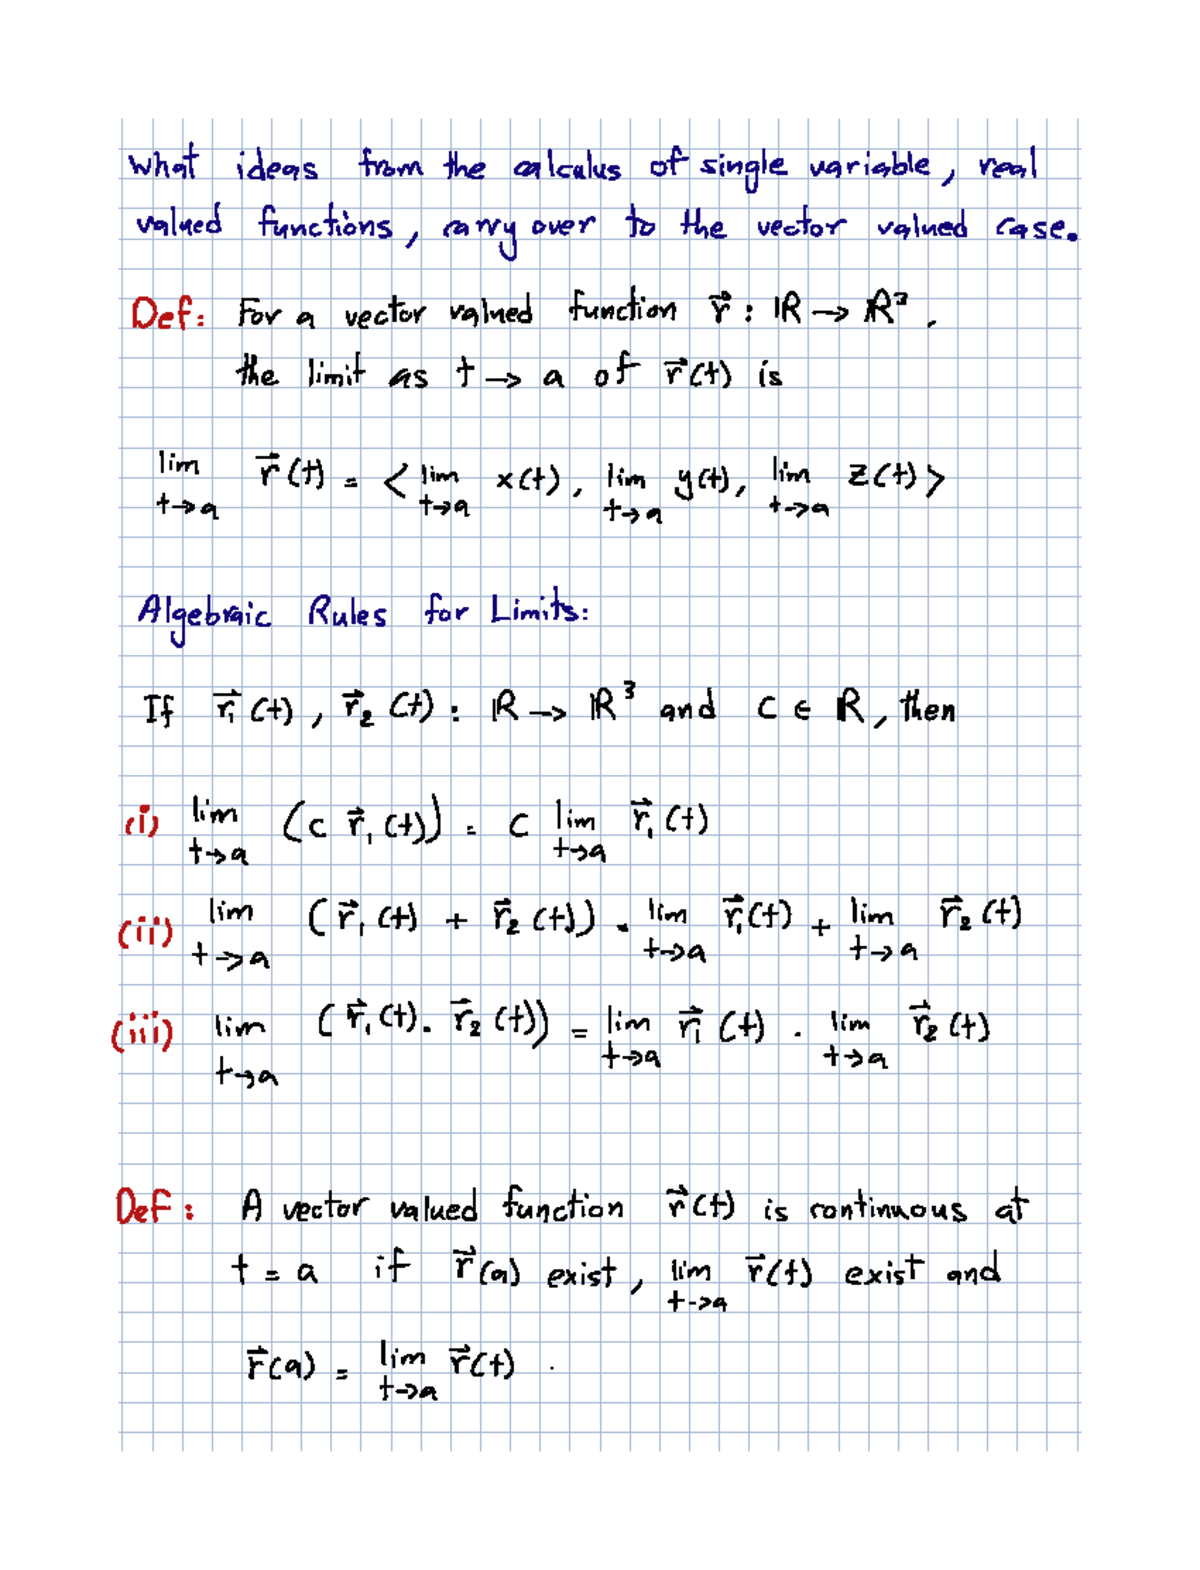 What ideas from the calculus of single variable, real
valued functions, carry over to the vector valued case.
Def: For a vector valued function r⃗ : ℝ → ℝ³,
the limit as t → a of r⃗(t) is
lim t→a r⃗(t) = < lim t→a x(t), lim t→a y(t), lim t→a z(t) >
Algebraic Rules for Limits:
If r⃗₁(t), r⃗₂(t): ℝ → ℝ³ and C ∈ ℝ, then
(i) lim t→a (c r⃗₁(t)) = C lim t→a r⃗₁(t)
(ii) lim t→a (r⃗₁(t) + r⃗₂(t)) = lim t→a r⃗₁(t) + lim t→a r⃗₂(t)
(iii) lim t→a (r⃗₁(t) . r⃗₂(t)) = lim t→a r⃗₁(t) . lim t→a r⃗₂(t)
Def: A vector valued function r⃗(t) is continuous at
t = a if r⃗(a) exist, lim t→a r⃗(t) exist and
r⃗(a) = lim t→a r⃗(t) .